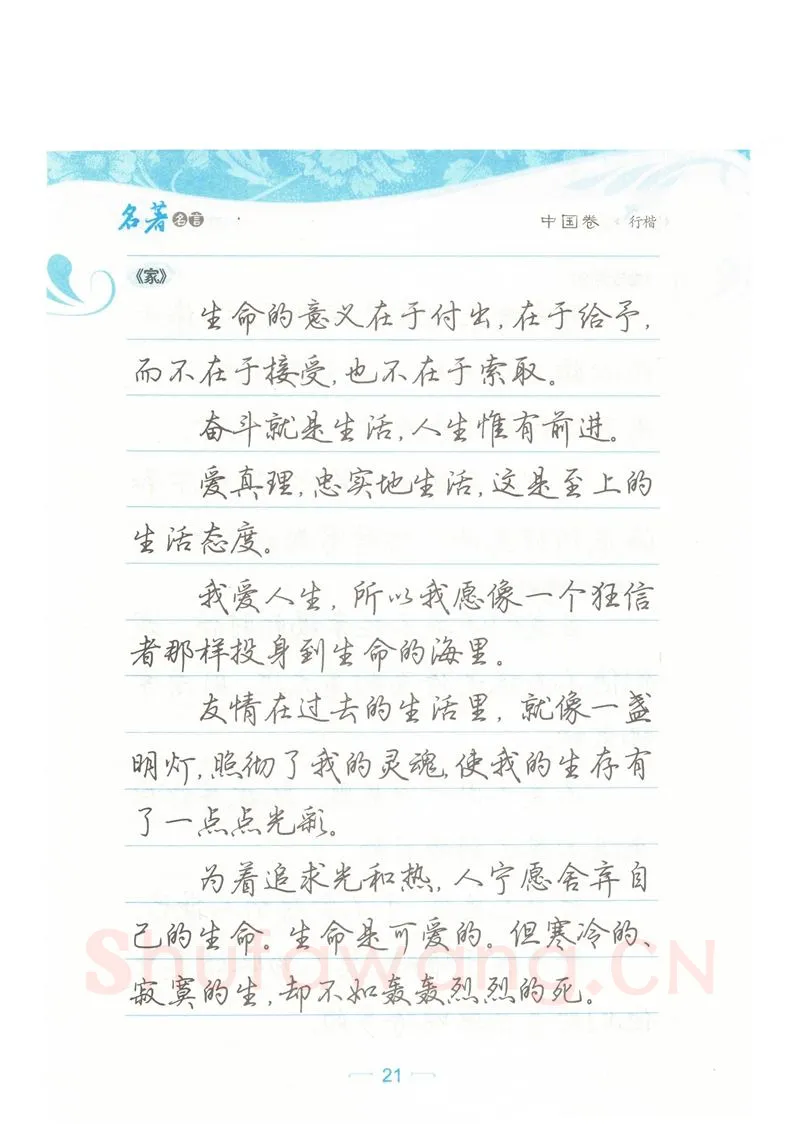 名著名言
中国卷 行楷
《家》
生命的意义在于付出,在于给予,
而不在于接受,也不在于索取。
奋斗就是生活,人生惟有前进。
爱真理,忠实地生活,这是至上的
生活态度。
我爱人生,所以我愿像一个狂信
者那样投身到生命的海里。
友情在过去的生活里,就像一盏
明灯,照彻了我的灵魂,使我的生存有
了一点点光彩。
为着追求光和热,人宁愿舍弃自
己的生命。生命是可爱的。但寒冷的、
寂寞的生,却不如轰轰烈烈的死。
Shufawang.CN
21